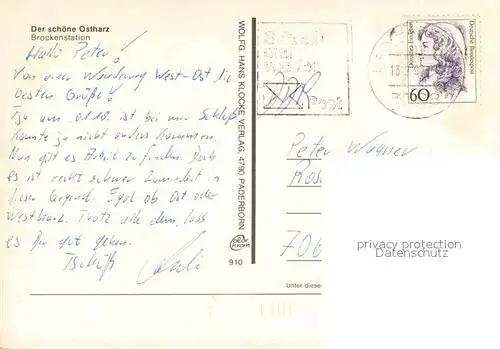 Der schöne Ostharz
Brockenstation
Hallo Peter!
Von einer Wanderung West-Ost die
besten Grüße!
Tja am 01.10. ist bei mir Schluß
Konnte ja nicht anders kommen.
Nun gilt es Arbeit zu finden. Doch
es ist recht schwer zumindest in
dieser Gegend. Egal ob Ost oder
West. Trotz alle dem, lass
es Dir gut gehen.
Tschüß
WOLFG. HANS KLOCKE VERLAG, 4790 PADERBORN
910
Post
Deutsche Bundespost
60
Peter Wagner
Ros
706
privacy protection
Datenschutz
Unter diese